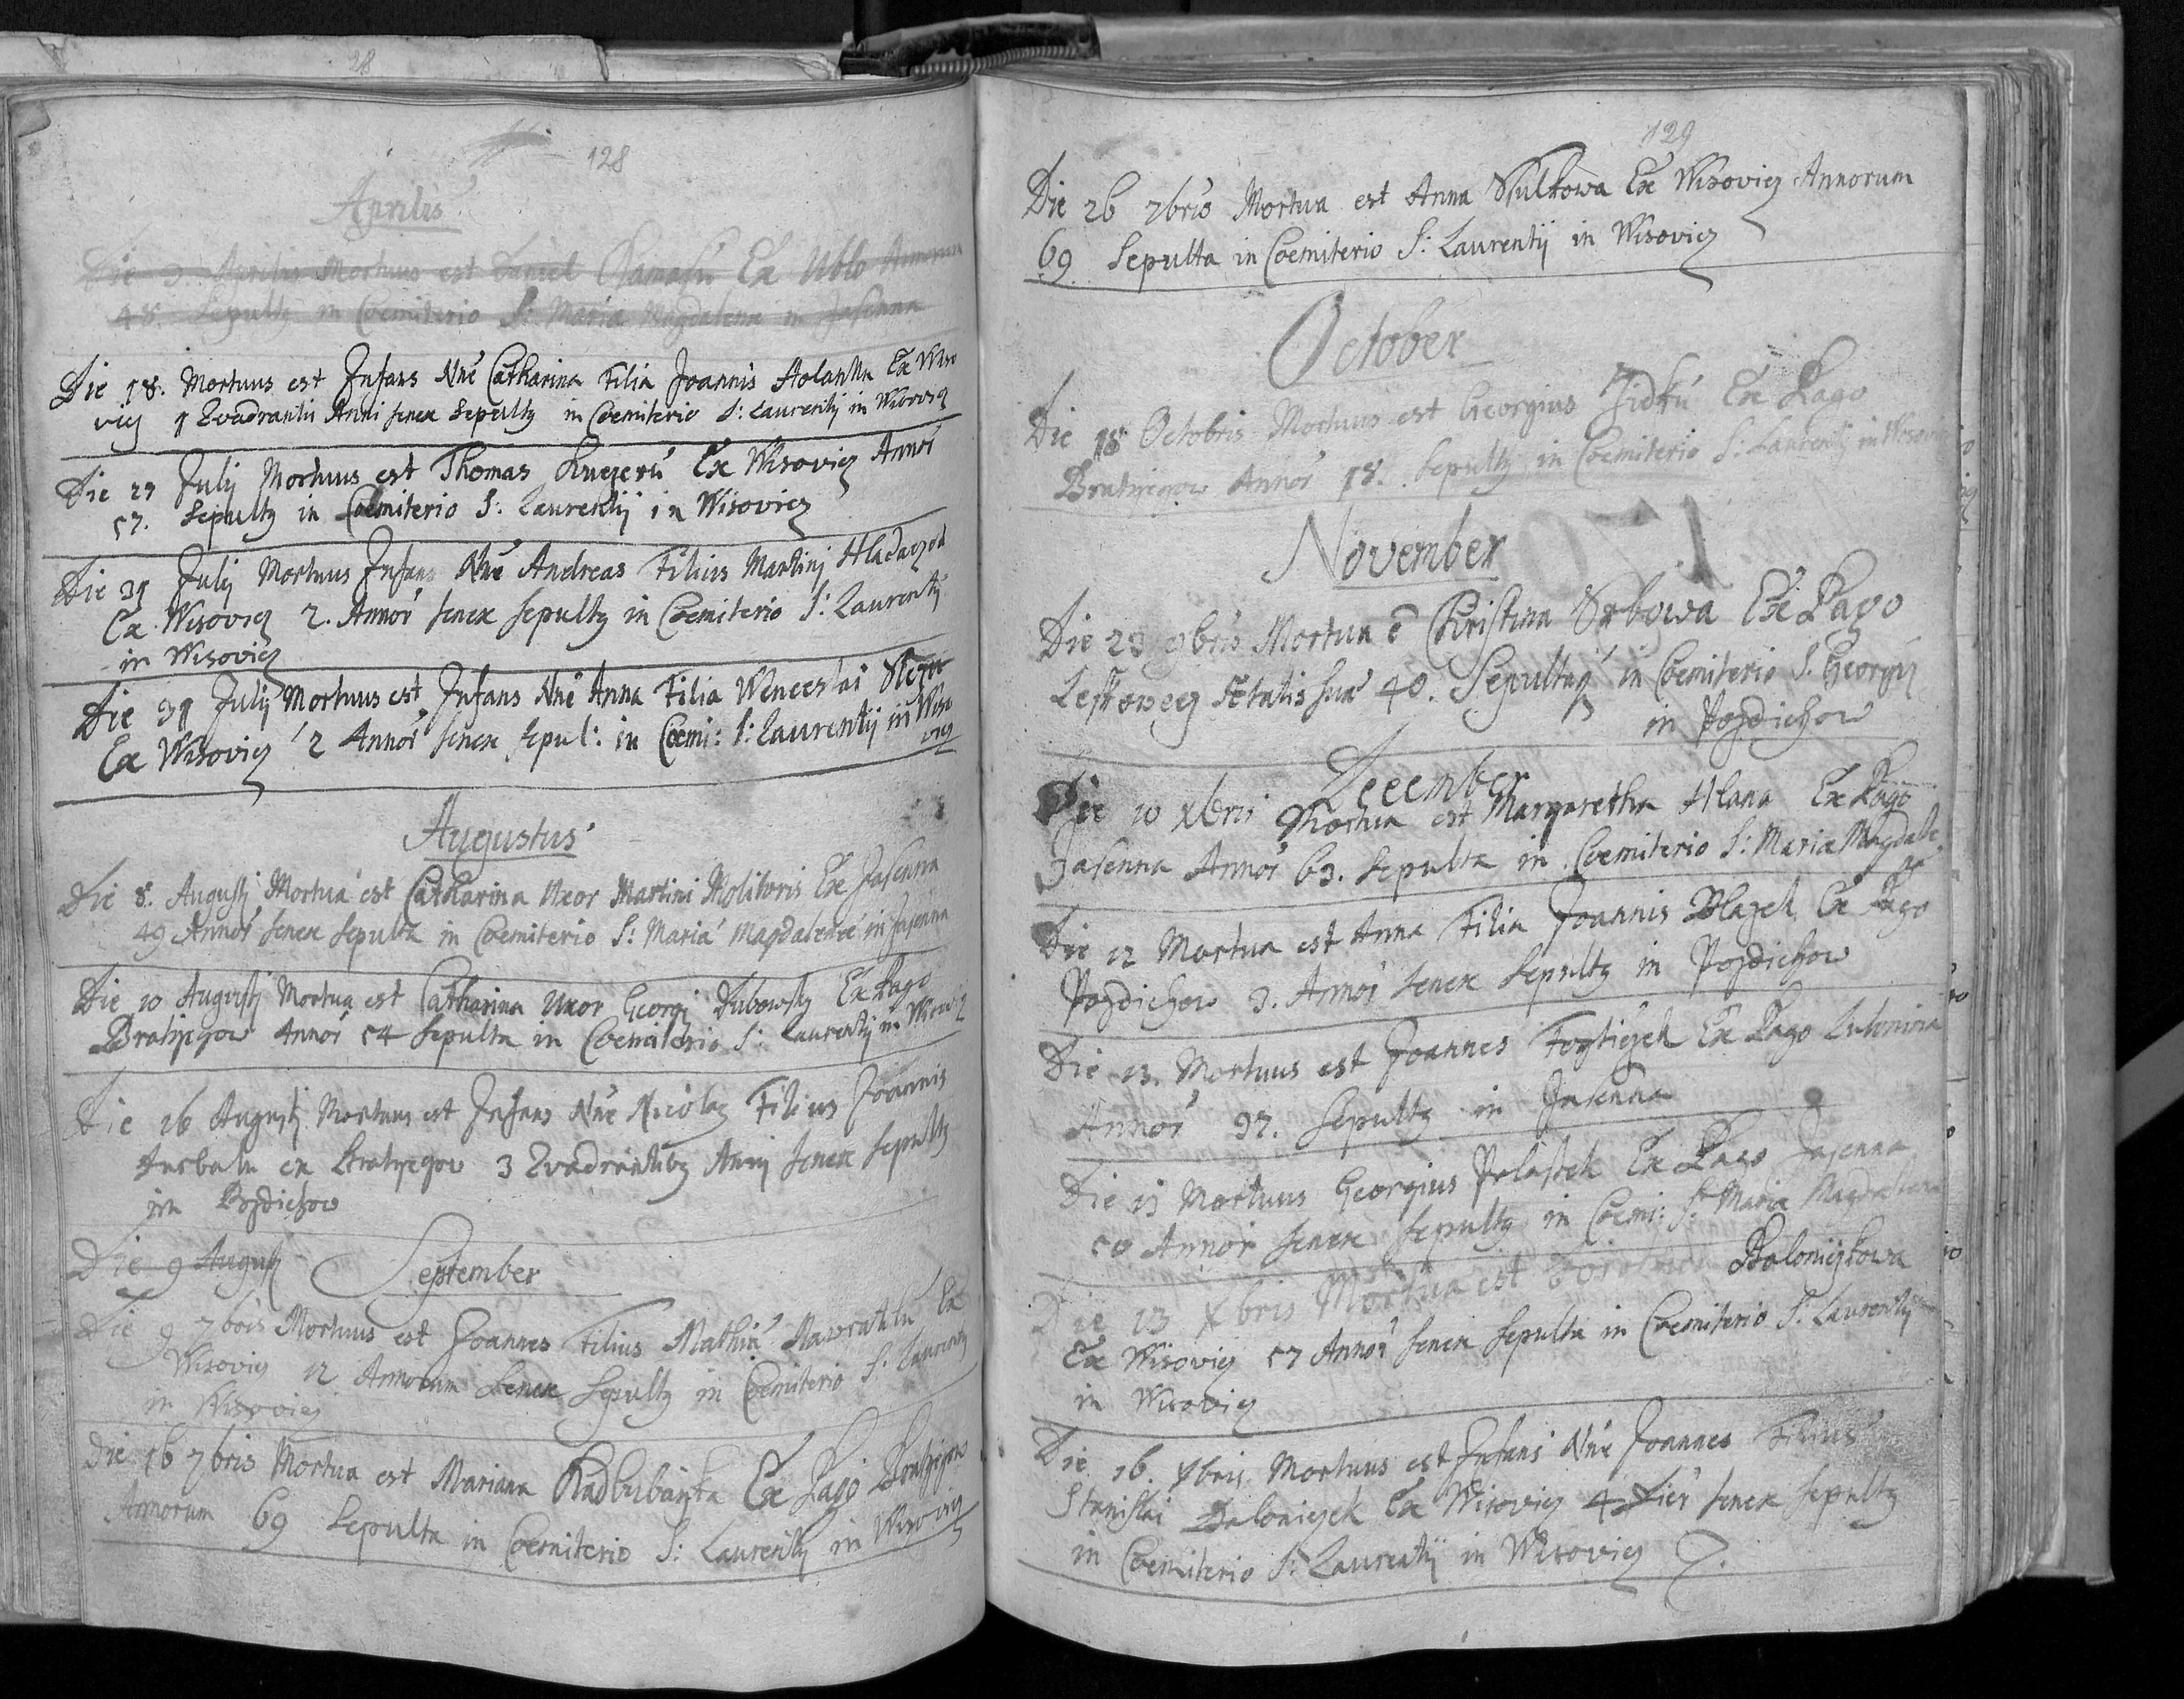 28
128
Aprilis
Die 3 Aprilis Mortuus est Daniel Ex Ublo Annorum
48. Sepultq in Coemiterio S: Maria Magdalena in Jasenna
Die 18. Mortuus est Infans Nnè Catharina Filia Joannis Holanka Ex Wiso
vicz 1 Qvadrantis Anni senex Sepultq in Coemiterio S: Laurentij in Wisovicz
Die 29 Julij Mortuus est Thomas Ex Wisovicz Annor̃
57. Sepultq in Coemiterio S: Laurentij in Wisovicz
Die 31 Julij Mortuus Infans Nnè Andreas Filius Martinj Hladaczek
Ex Wisovicz 2. Annor̃ senex sepultq in Coemiterio S: Laurentij
in Wisovicz
Die 31 Julij Mortuus est Infans Nnè Anna Filia Wenceslai
Ex Wisovicz 2 Annor̃ senex sepul: in Coemi: S: Laurentij in Wiso
vicz
Augustus
Die 8. Augustj Mortua est Catharina Uxor Martini Molitoris Ex Jasenna
49 Annor̃ senex sepulta in Coemiterio S: Maria Magdalenae in Jasenna
Die 10 Augustj Mortua est Catharina Uxor Georgj Dubowsky Ex Pago
Bratrzegow Annor̃ 54 sepulta in Coemiterio S: Laurentij in Wisovicz
Die 16 Augustj Mortuus est Infans Nnè Nicolaq Filius Joannis
ex Bratrzegow 3 Qvadrantibq Annj senex sepultq
in Pozdiechow
Die 9 Augustj September
Die 9 7bris Mortuus est Joannes Filius Mathiæ Nawratilu Ex
Wisovicz 12 Annorum Senex Sepultq in Coemiterio S: Laurentij
in Wisovicz
Die 16 7bris Mortua est Mariana Ex Pago Bratrzegow
Annorum 69 Sepulta in Coemiterio S: Laurentij in Wisovicz
129
Die 26 7bris Mortua est Anna Ex Wisovicz Annorum
69 Sepulta in Coemiterio S: Laurentij in Wisovicz
October
Die 18 Octobris Mortuus est Georgius Ex Pago
Bratrzegow Annor̃ 18. Sepultq in Coemiterio S: Laurentij in Wisovicz
November
Die 23 9bris Mortua ẽ Christina Srbowa Ex Pago
Ætatis suæ 40. Sepulta in Coemiterio S. Georgij
in Pozdiechow
December
Die 10 Xbris Mortua est Margaretha Hlana Ex Pago
Jasenna Annor̃ 63. Sepulta in Coemiterio S: Mariæ Magdale
næ
Die 12 Mortua est Anna Filia Joannis Blazek Ex Pago
Pozdiechow 3. Annor̃ senex Sepultq in Pozdiechow
Die 13. Mortuus est Joannes Ex Pago Lutonina
Annor̃ 97. Sepultq in Jasenna
Die 13 Mortuus Georgius Ex Pago Jasenna
50 Annor̃ senex sepultq in Coemi: S: Maria Magdalena
Die 13 Xbris Mortua est
Ex Wisovicz 57 Annor̃ senex sepulta in Coemiterio S: Laurentij
in Wisovicz
Die 16. Xbris Mortuus est Infans Nnè Joannes Filius
Stanislai Ex Wisovicz 4 Dier̃ senex sepultq
in Coemiterio S: Laurentij in Wisovicz